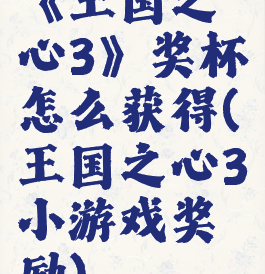 《王国之
心3》奖杯
怎么获得(
王国之心3
小游戏奖
励)